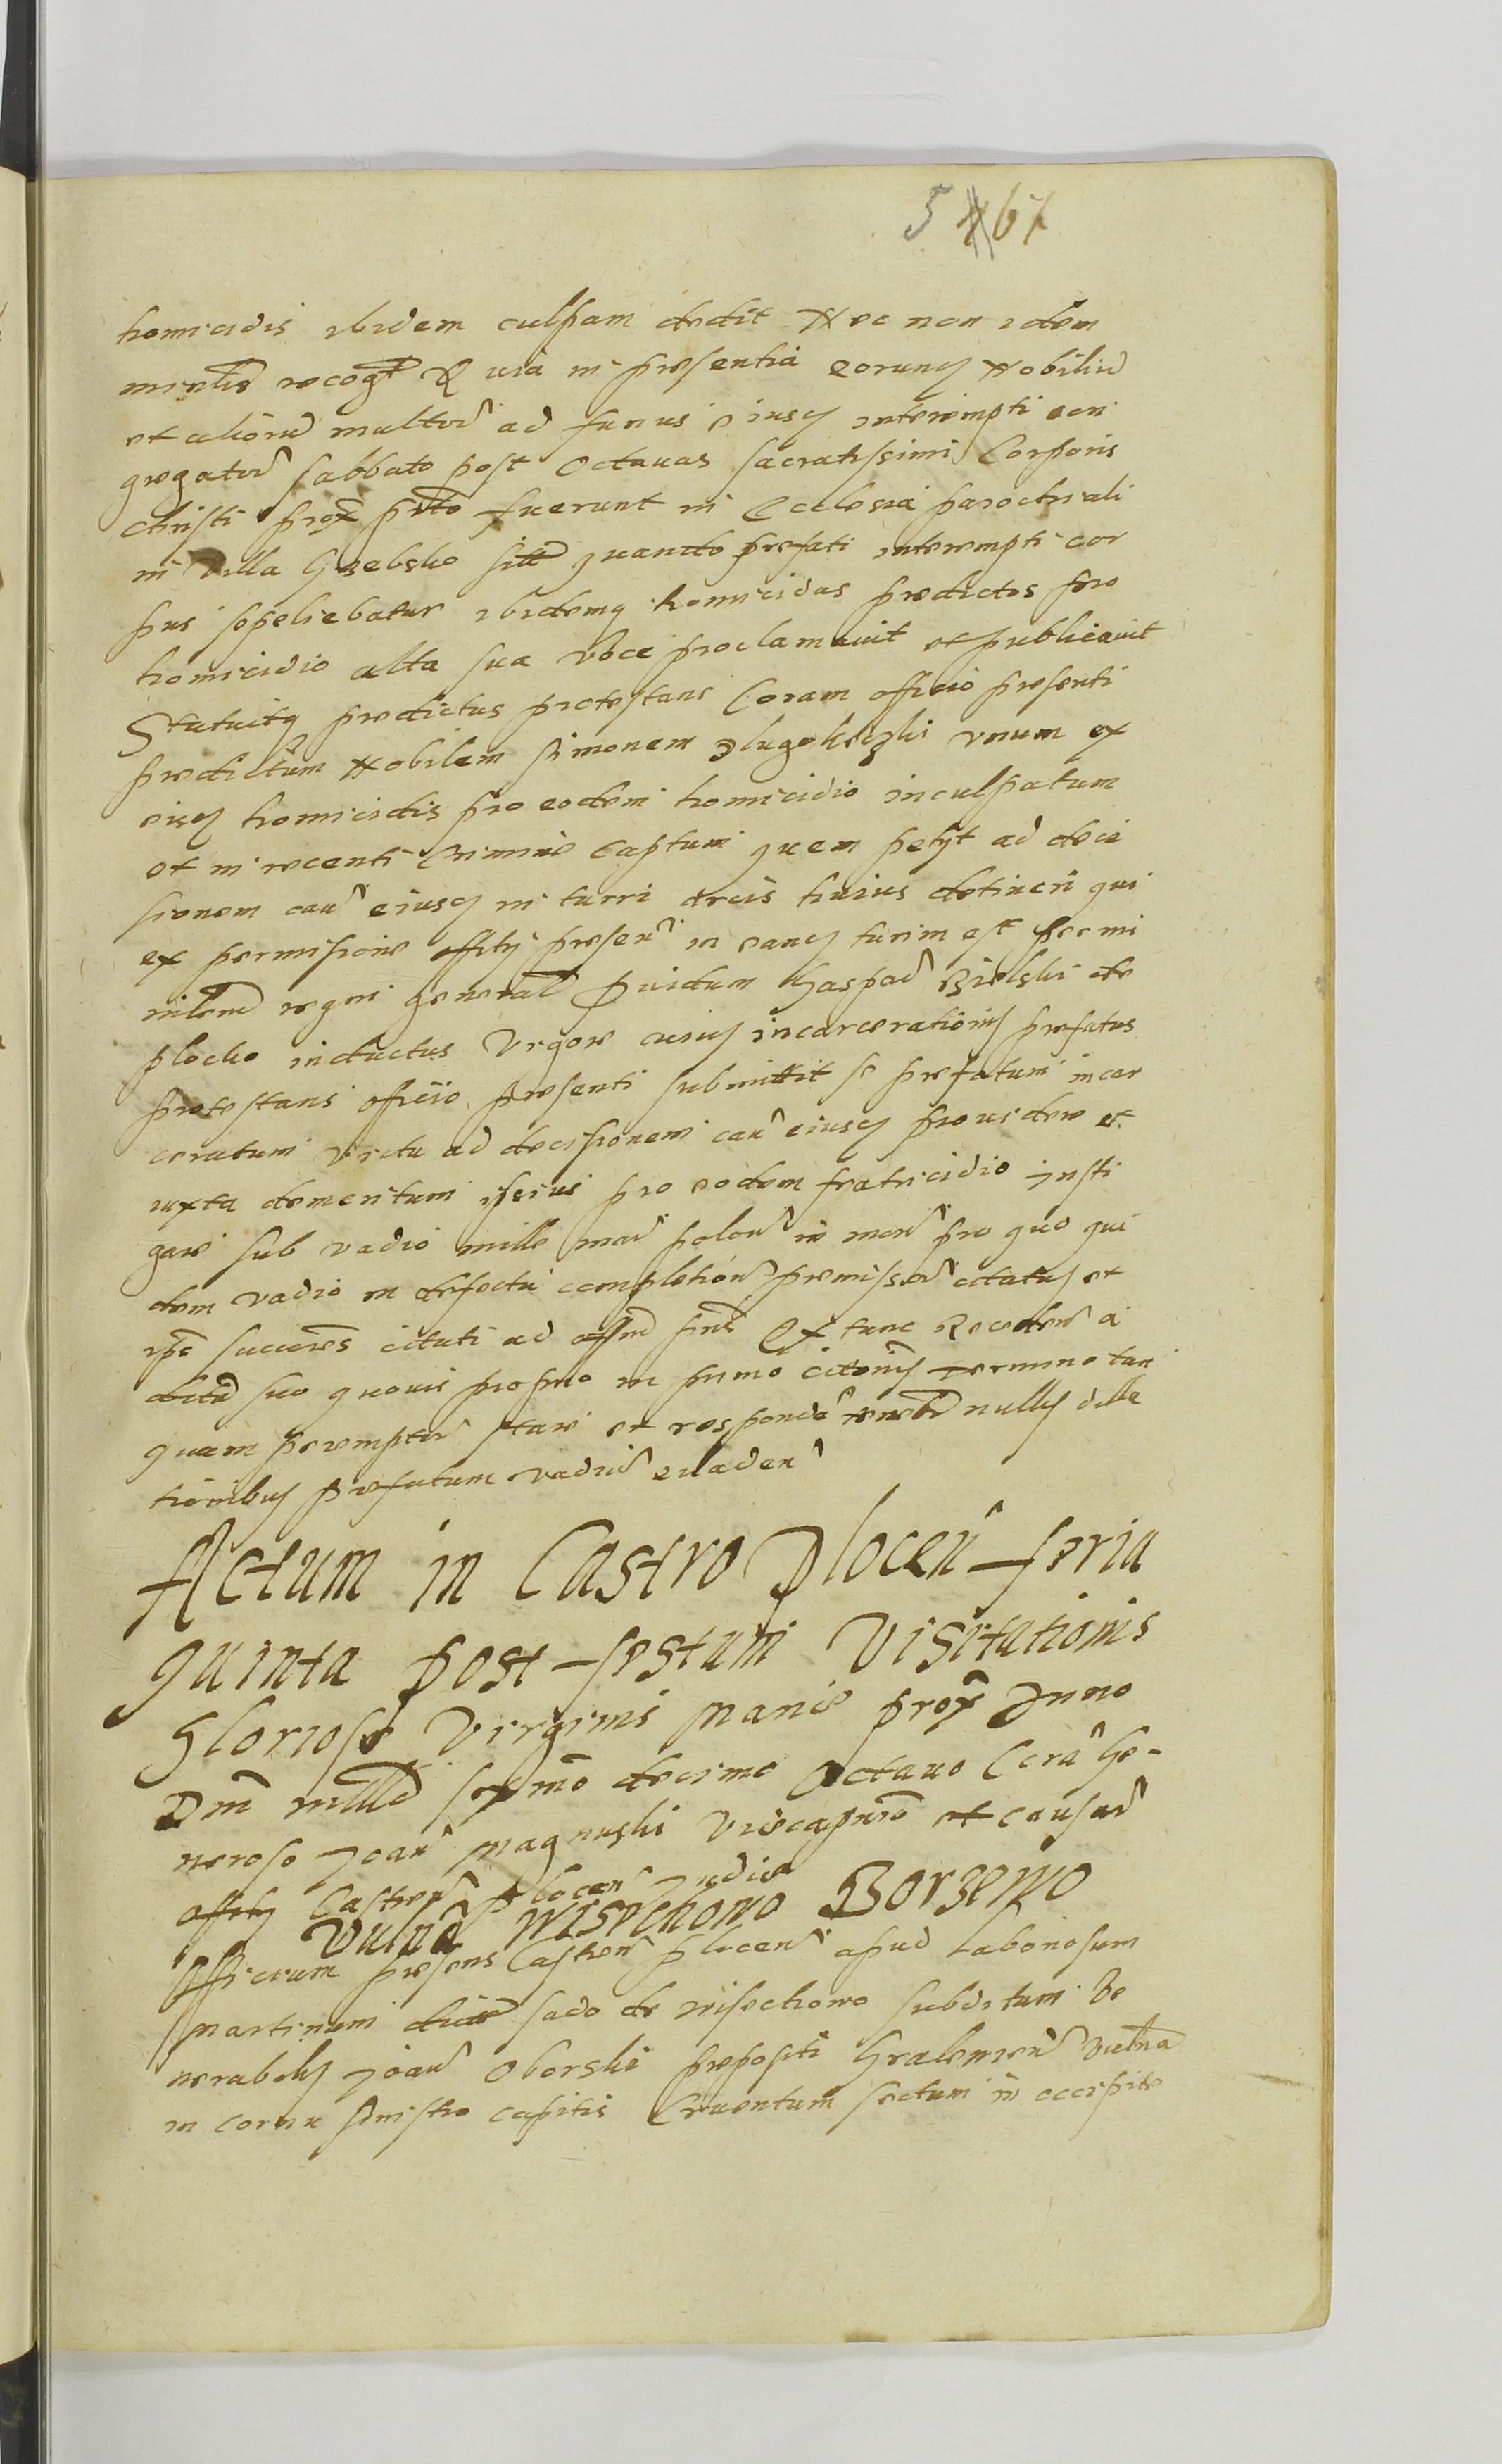 5 61
homicidis ibidem culpam dedit Nec non idem
minlis recogt Quia in presentia eorundem Nobiliu
et alioru multor ad funus eiusdem interempti con
gregator sabbato post Octauas sacratissimi Corporis
Christi prox prto fuerunt in Ecclesia parochiali
in Villa Gzebsko quando prefati interempti cor
pus sepeliebatur ibidemq homicidas predictos pro
homicidio alta sua voce proclamauit et publicauit
Statuitq predictus protestans Coram officio presenti
predictum Nobilem Simonem Dlugokeczki vnum ex
eisdem homicidis pro eodem homicidio inculpatum
et in recenti Crimine Captum quem petyt ad deci
sionem cau eiusdem in turri Arcis huius detineri qui
ex permissione offity presen in eandem turim est per mi
nilem regni general Prouidum Gaspar Bielski de
plocko inductus Vigore cuius incarcerationis prefatus
protestans officio presenti submittit se prefatum incar
ceratum Victu ad decisionem cau eiusdem prouidere et
iuxta demeritum ipsius pro eodem fratricidio insti
gare sub vadio mille mar polon in mon pro quo qui
dem vadio in defectu completion premissor citatus et
ipse succres citati ad offm pns Ex tunc Receden a
districtu suo quouis proprio in primo citonis termino tan
quam peremptor stare et responder tenebr nullis dila
tionibus prefatum vadiu euaden
Actum in Castro Plocen feria
quinta post festum Visitationis
Gloriose Virginis Marie prox Anno
Dni mille sexmo decimo Octauo Cora Ge-
neroso Joan Magnuski Vicecaptneo et causar
offity Castren plocen Judice
Vulna Misechowo Borzewo
Officium presens Castren plocen apud laboriosum
Martinum dict sado de misechowo subditum Ve
nerabilis Joan Oborski prepositi Gralewien Vulna
in cornu sinistro capitis Cruentum sectum in occipite